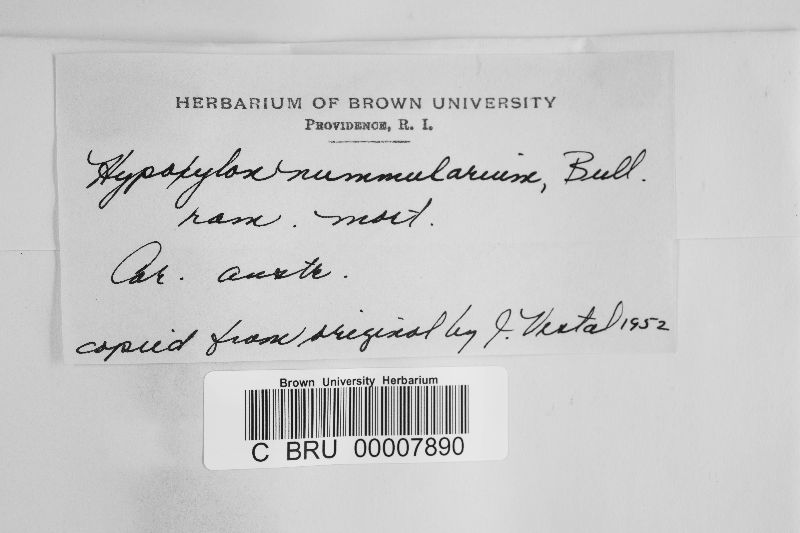 HERBARIUM OF BROWN UNIVERSITY
PROVIDENCE, R. I.
Hypoxylon nummularium, Bull.
ram. mort.
Car. austr.
copied from original by J. Vestal 1952
Brown University Herbarium
C BRU 00007890